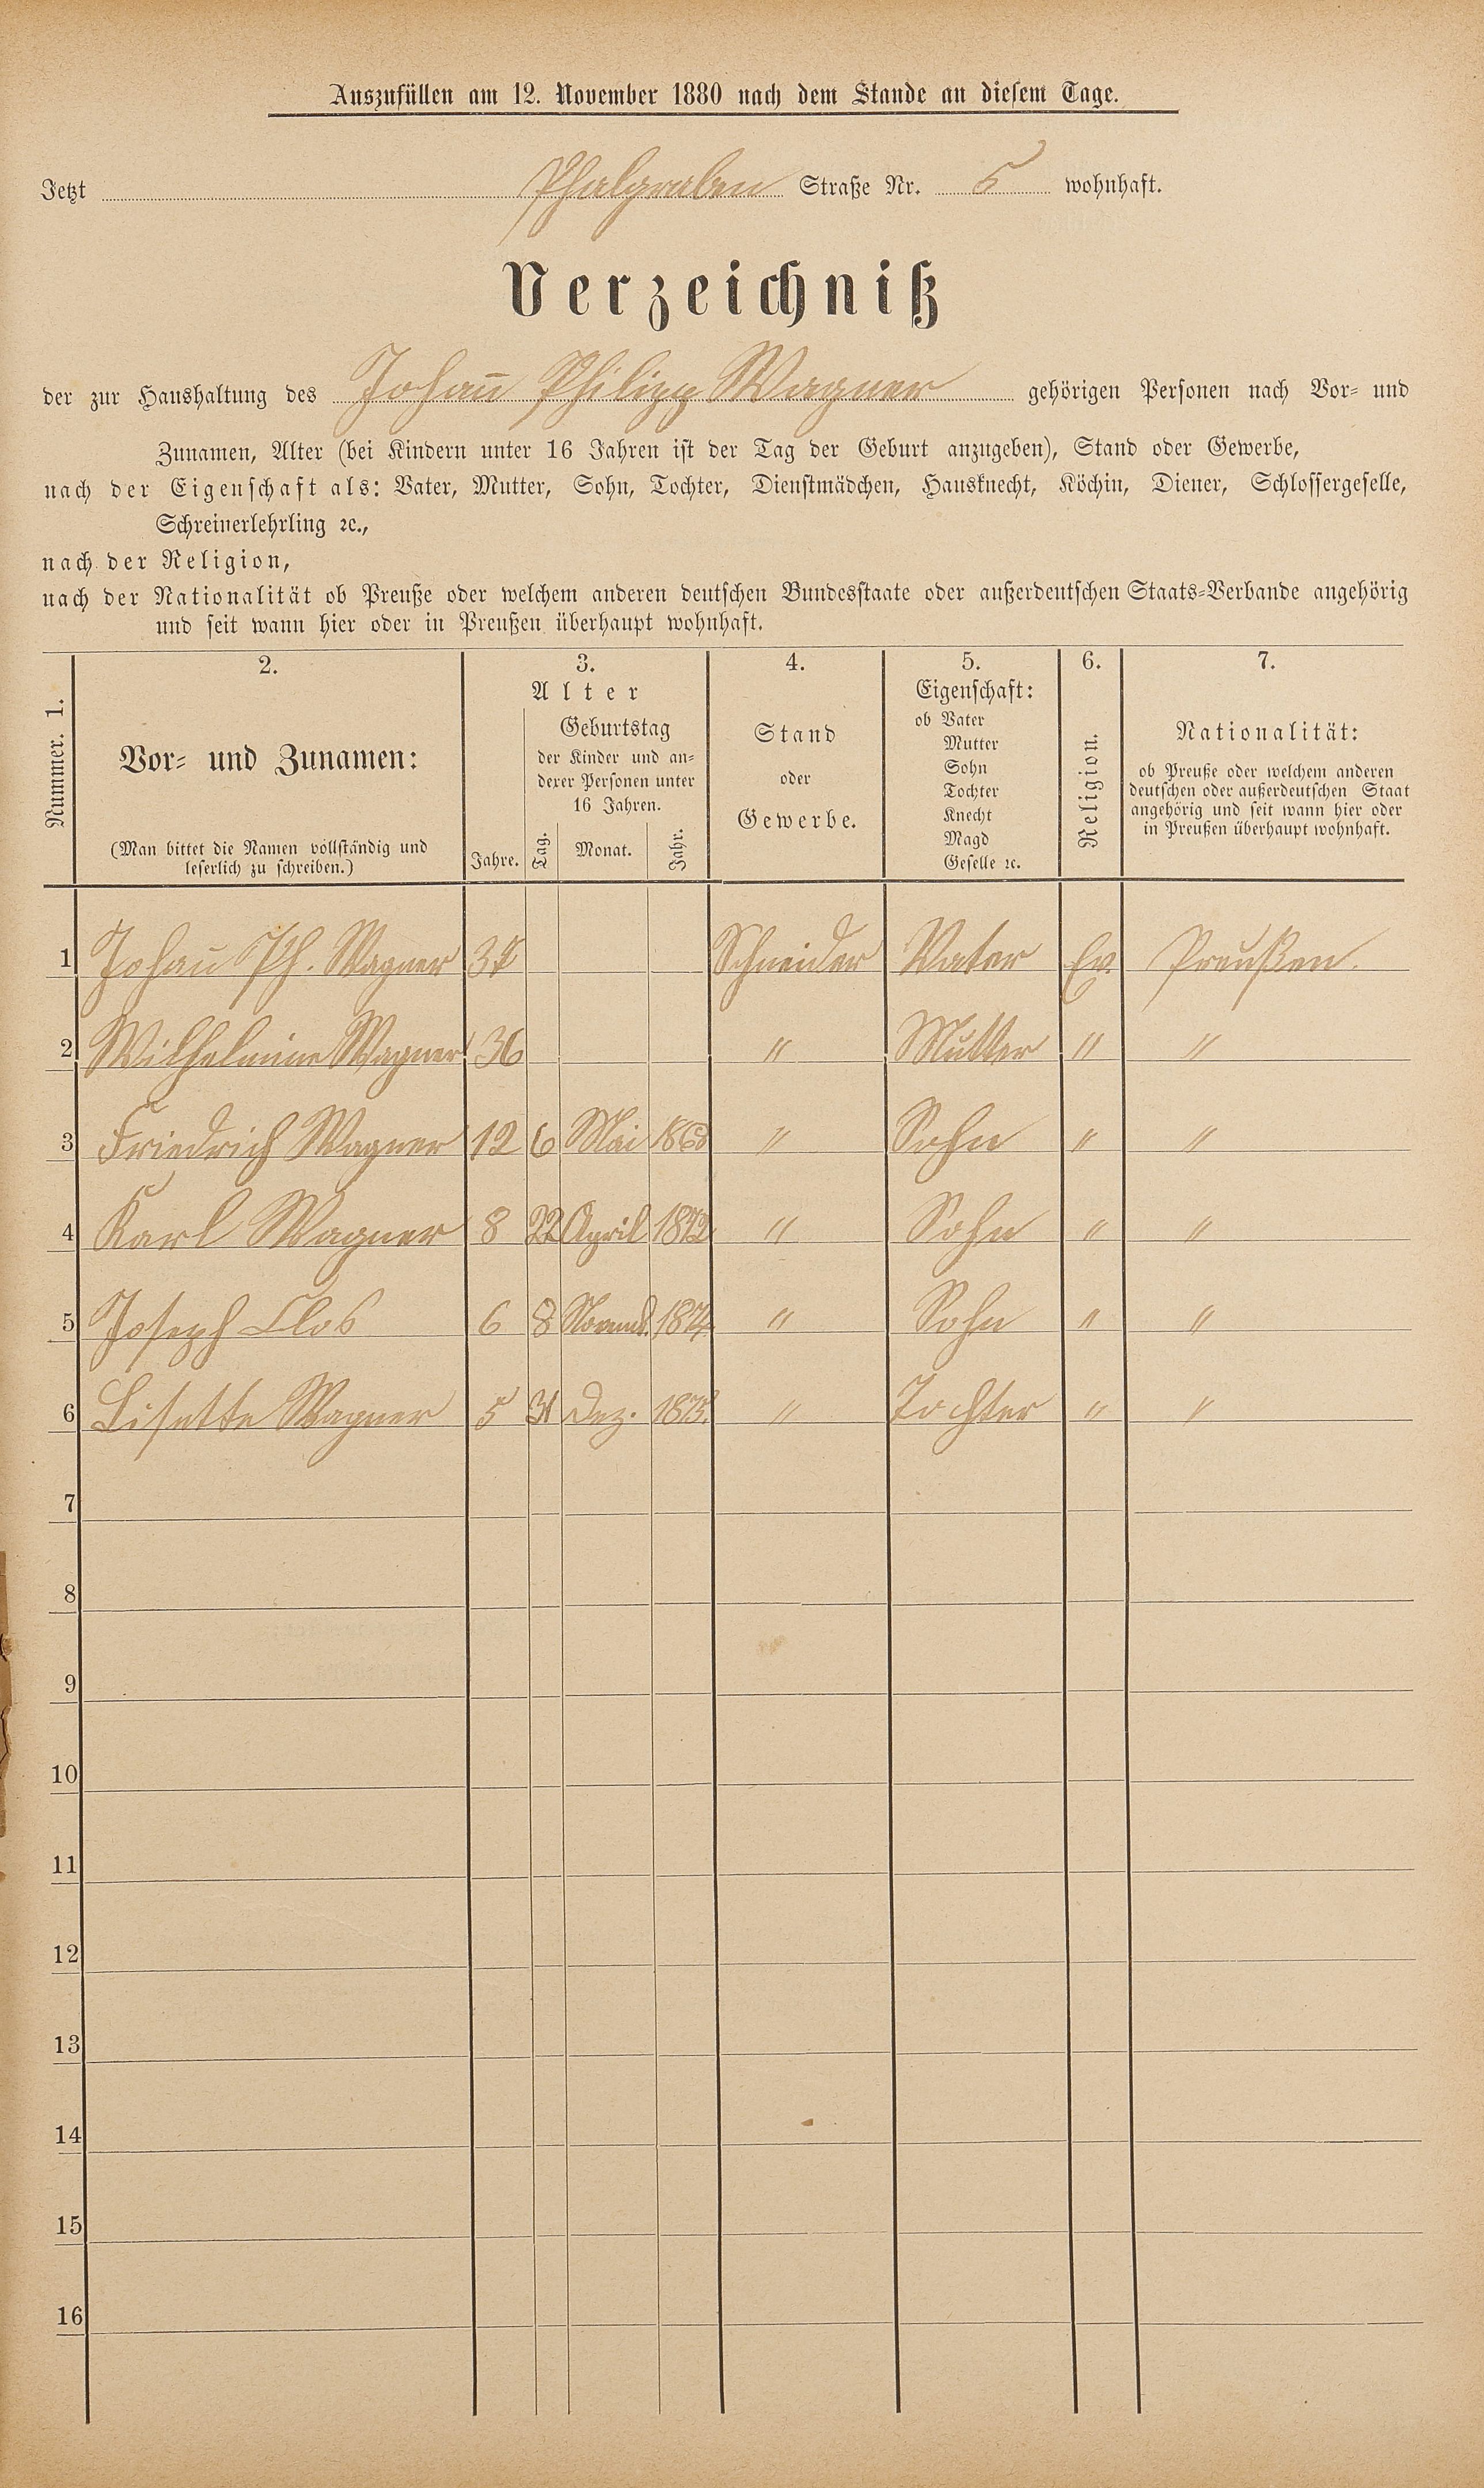 Auszufüllen am 12. November 1880 nach dem Stande an diesem Tage.
Jetzt Phalgraben Straße Nr. 5 wohnhaft.
Verzeichniß
der zur Haushaltung des Johañ Philipp Wagner gehörigen Personen nach Vor- und
Zunamen, Alter (bei Kindern unter 16 Jahren ist der Tag der Geburt anzugeben), Stand oder Gewerbe,
nach der Eigenschaft als: Vater, Mutter, Sohn, Tochter, Dienstmädchen, Hausknecht, Köchin, Diener, Schlossergeselle,
Schreinerlehrling ꝛc.,
nach der Religion,
nach der Nationalität ob Preuße oder welchem anderen deutschen Bundesstaate oder außerdeutschen Staats-Verbande angehörig
und seit wann hier oder in Preußen überhaupt wohnhaft.
Nummer. 1.
2.
Vor- und Zunamen:
(Man bittet die Namen vollständig und
leserlich zu schreiben.)
3.
Alter
Jahre.
Geburtstag
der Kinder und an-
derer Personen unter
16 Jahren.
Tag. Monat. Jahr.
4.
Stand
oder
Gewerbe.
5.
Eigenschaft:
ob Vater
Mutter
Sohn
Tochter
Knecht
Magd
Geselle ꝛc.
6.
Religion.
7.
Nationalität:
ob Preuße oder welchem anderen
deutschen oder außerdeutschen Staat
angehörig und seit wann hier oder
in Preußen überhaupt wohnhaft.
1 Johañ Ph. Wagner Schneider Vater Ev. Preußen.
2 Wilhelmine Wagner 36 " Mutter " "
3 Friedrich Wagner 12 6 Mai 1868 " Sohn " "
4 Karl Wagner 8 22 April 1872 " Sohn " "
5 Joseph Clos 6 8 Novemb. 1874 " Sohn " "
6 Lisette Wagner 5 31 Dez. 1875 " Tochter " "
7
8
9
10
11
12
13
14
15
16